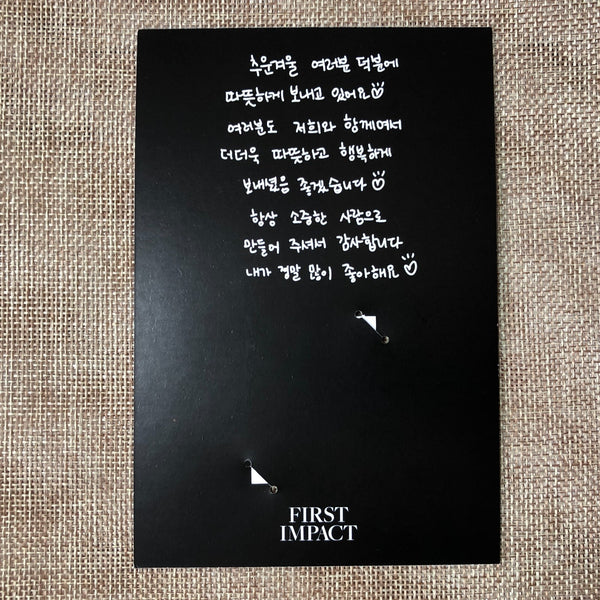 추운겨울 여러분 덕분에
따뜻하게 보내고 있어요
여러분도 저희와 함께여서
더더욱 따뜻하고 행복하게
보내셨음 좋겠습니다
항상 소중한 사람으로
만들어 주셔서 감사합니다
내가 정말 많이 좋아해요
FIRST
IMPACT